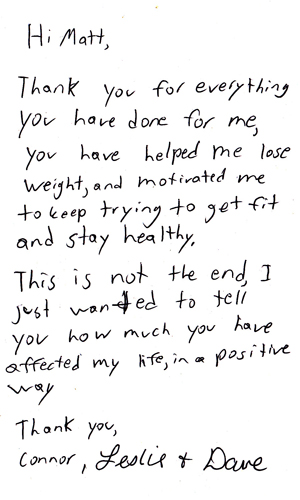 Hi Matt,
Thank you for everything
you have done for me,
you have helped me lose
weight, and motivated me
to keep trying to get fit
and stay healthy.
This is not the end, I
just wanted to tell
you how much you have
affected my life, in a positive
way
Thank you,
Connor, Leslie + Dave